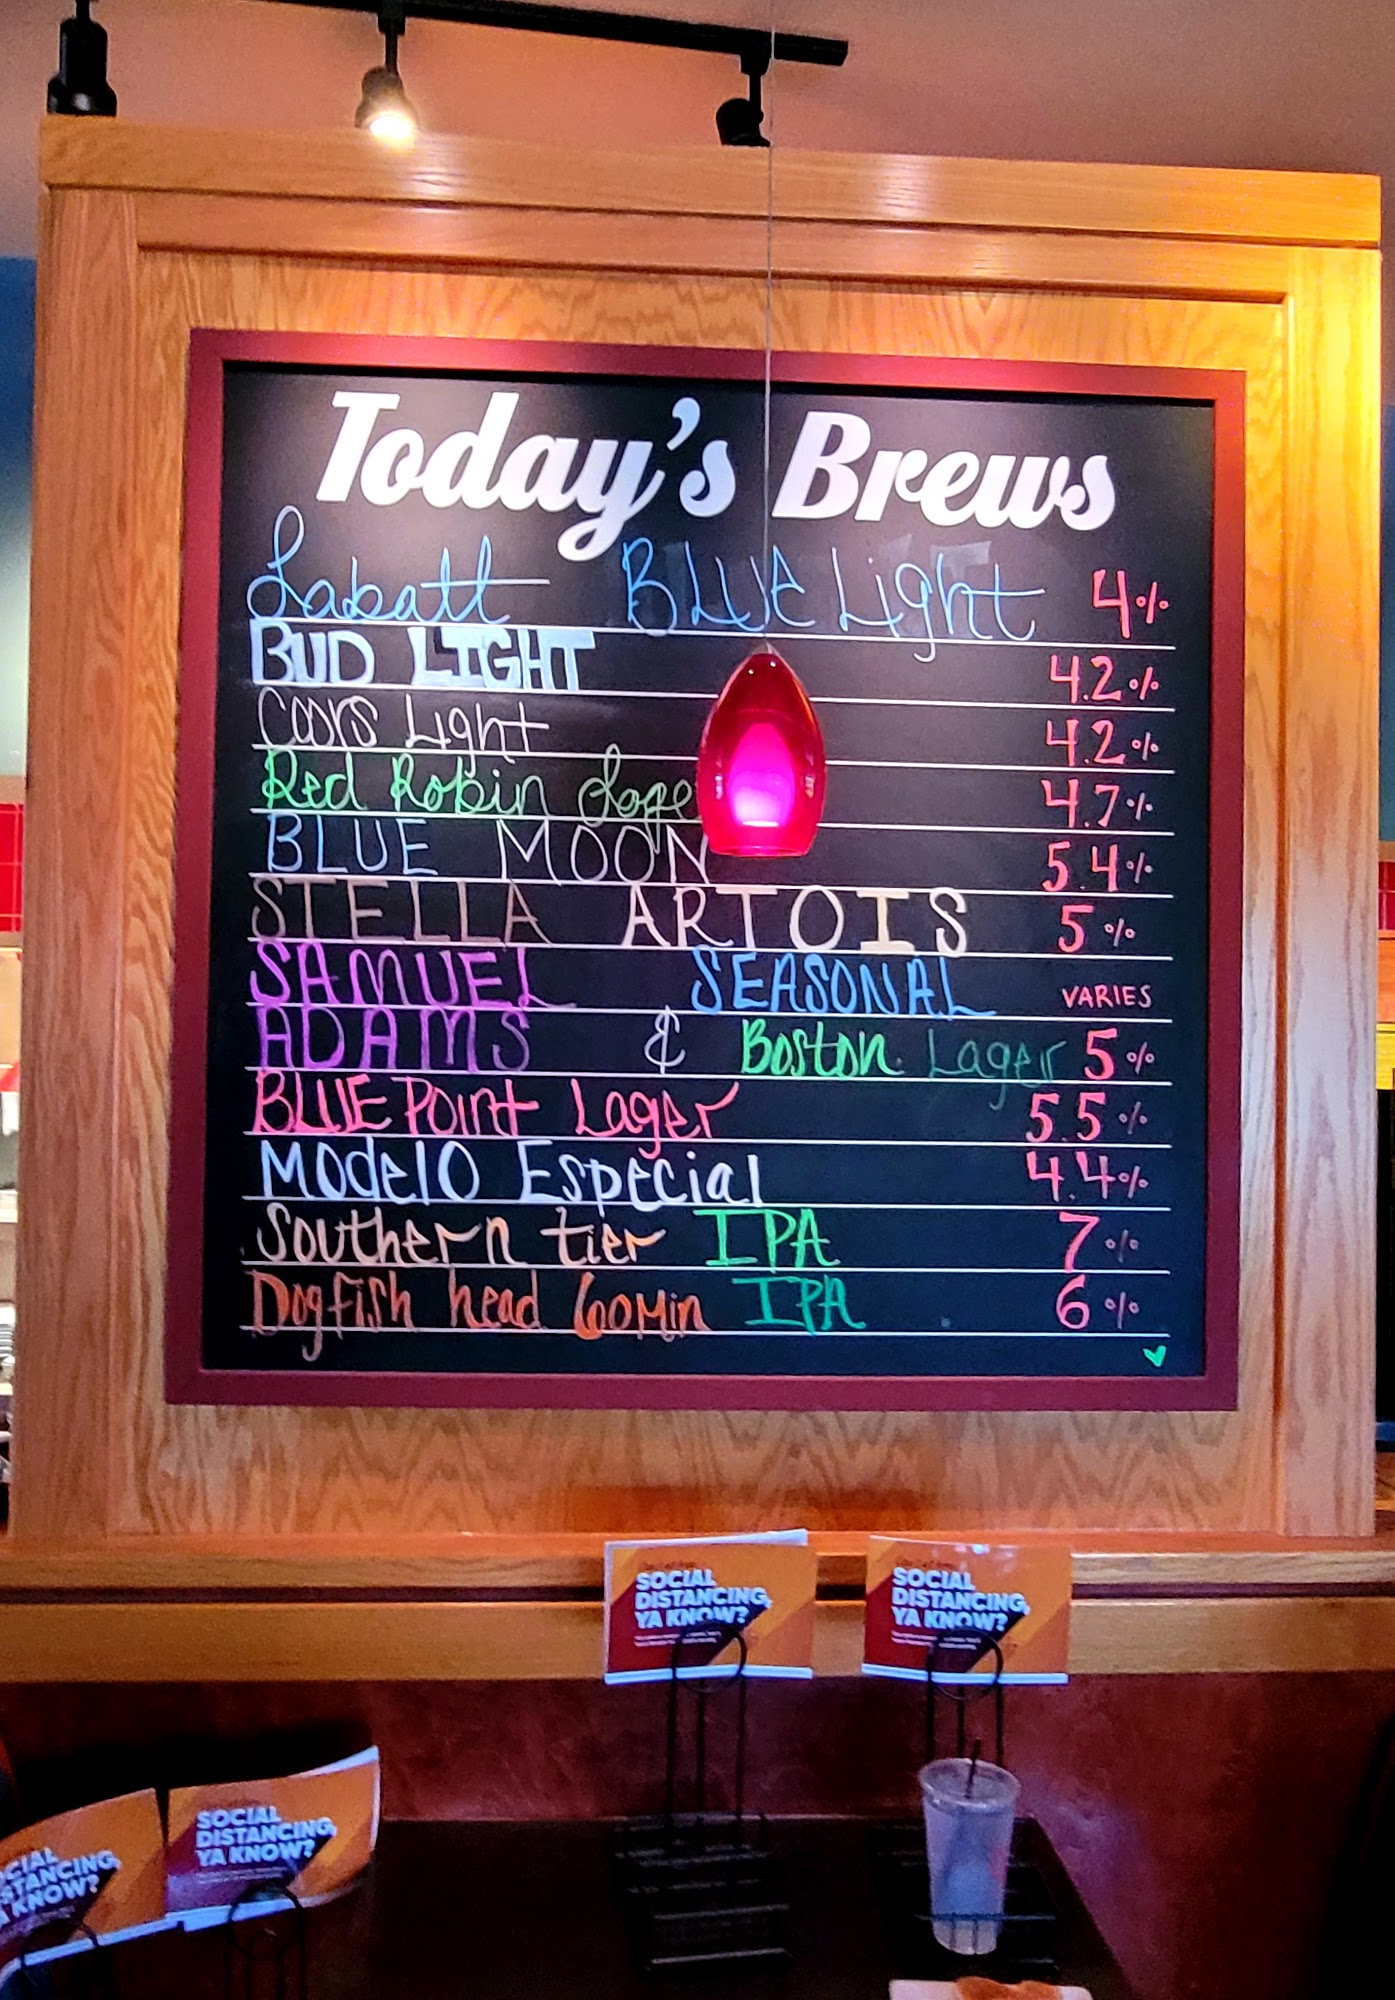 Today's Brews
Labatt BLUE Light 4%
BUD LIGHT 4.2%
Coors Light 4.2%
Red Robin 4.7%
BLUE MOON 5.4%
STELLA ARTOIS 5%
SAMUEL SEASONAL VARIES
ADAMS & Boston Lager 5%
BLUE Point Lager 5.5%
Modelo Especial 4.4%
Southern tier IPA 7%
Dogfish head 60Min IPA 6%
SOCIAL
DISTANCING,
YA KNOW?
SOCIAL
DISTANCING,
YA KNOW?
SOCIAL
DISTANCING,
YA KNOW?
KNOW?